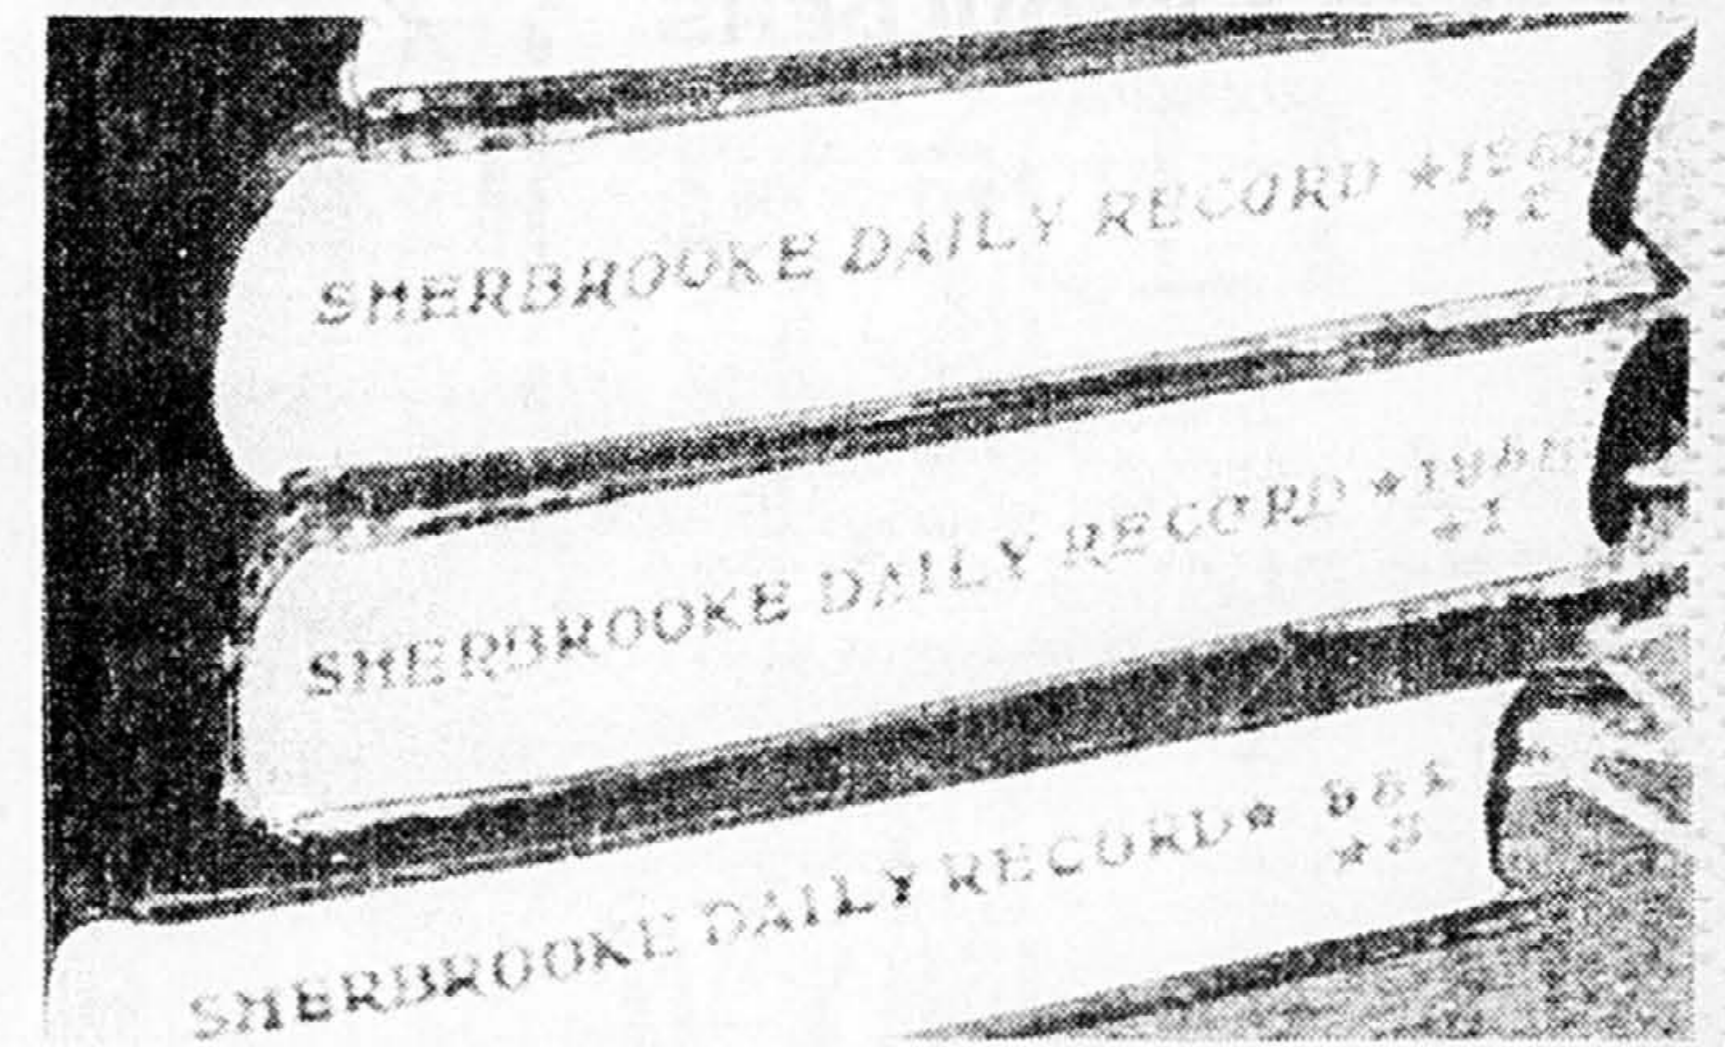 SHERBROOKE DAILY RECORD ★1960
★2
SHERBROOKE DAILY RECORD ★1960
★1
SHERBROOKE DAILY RECORD★ 961
★3